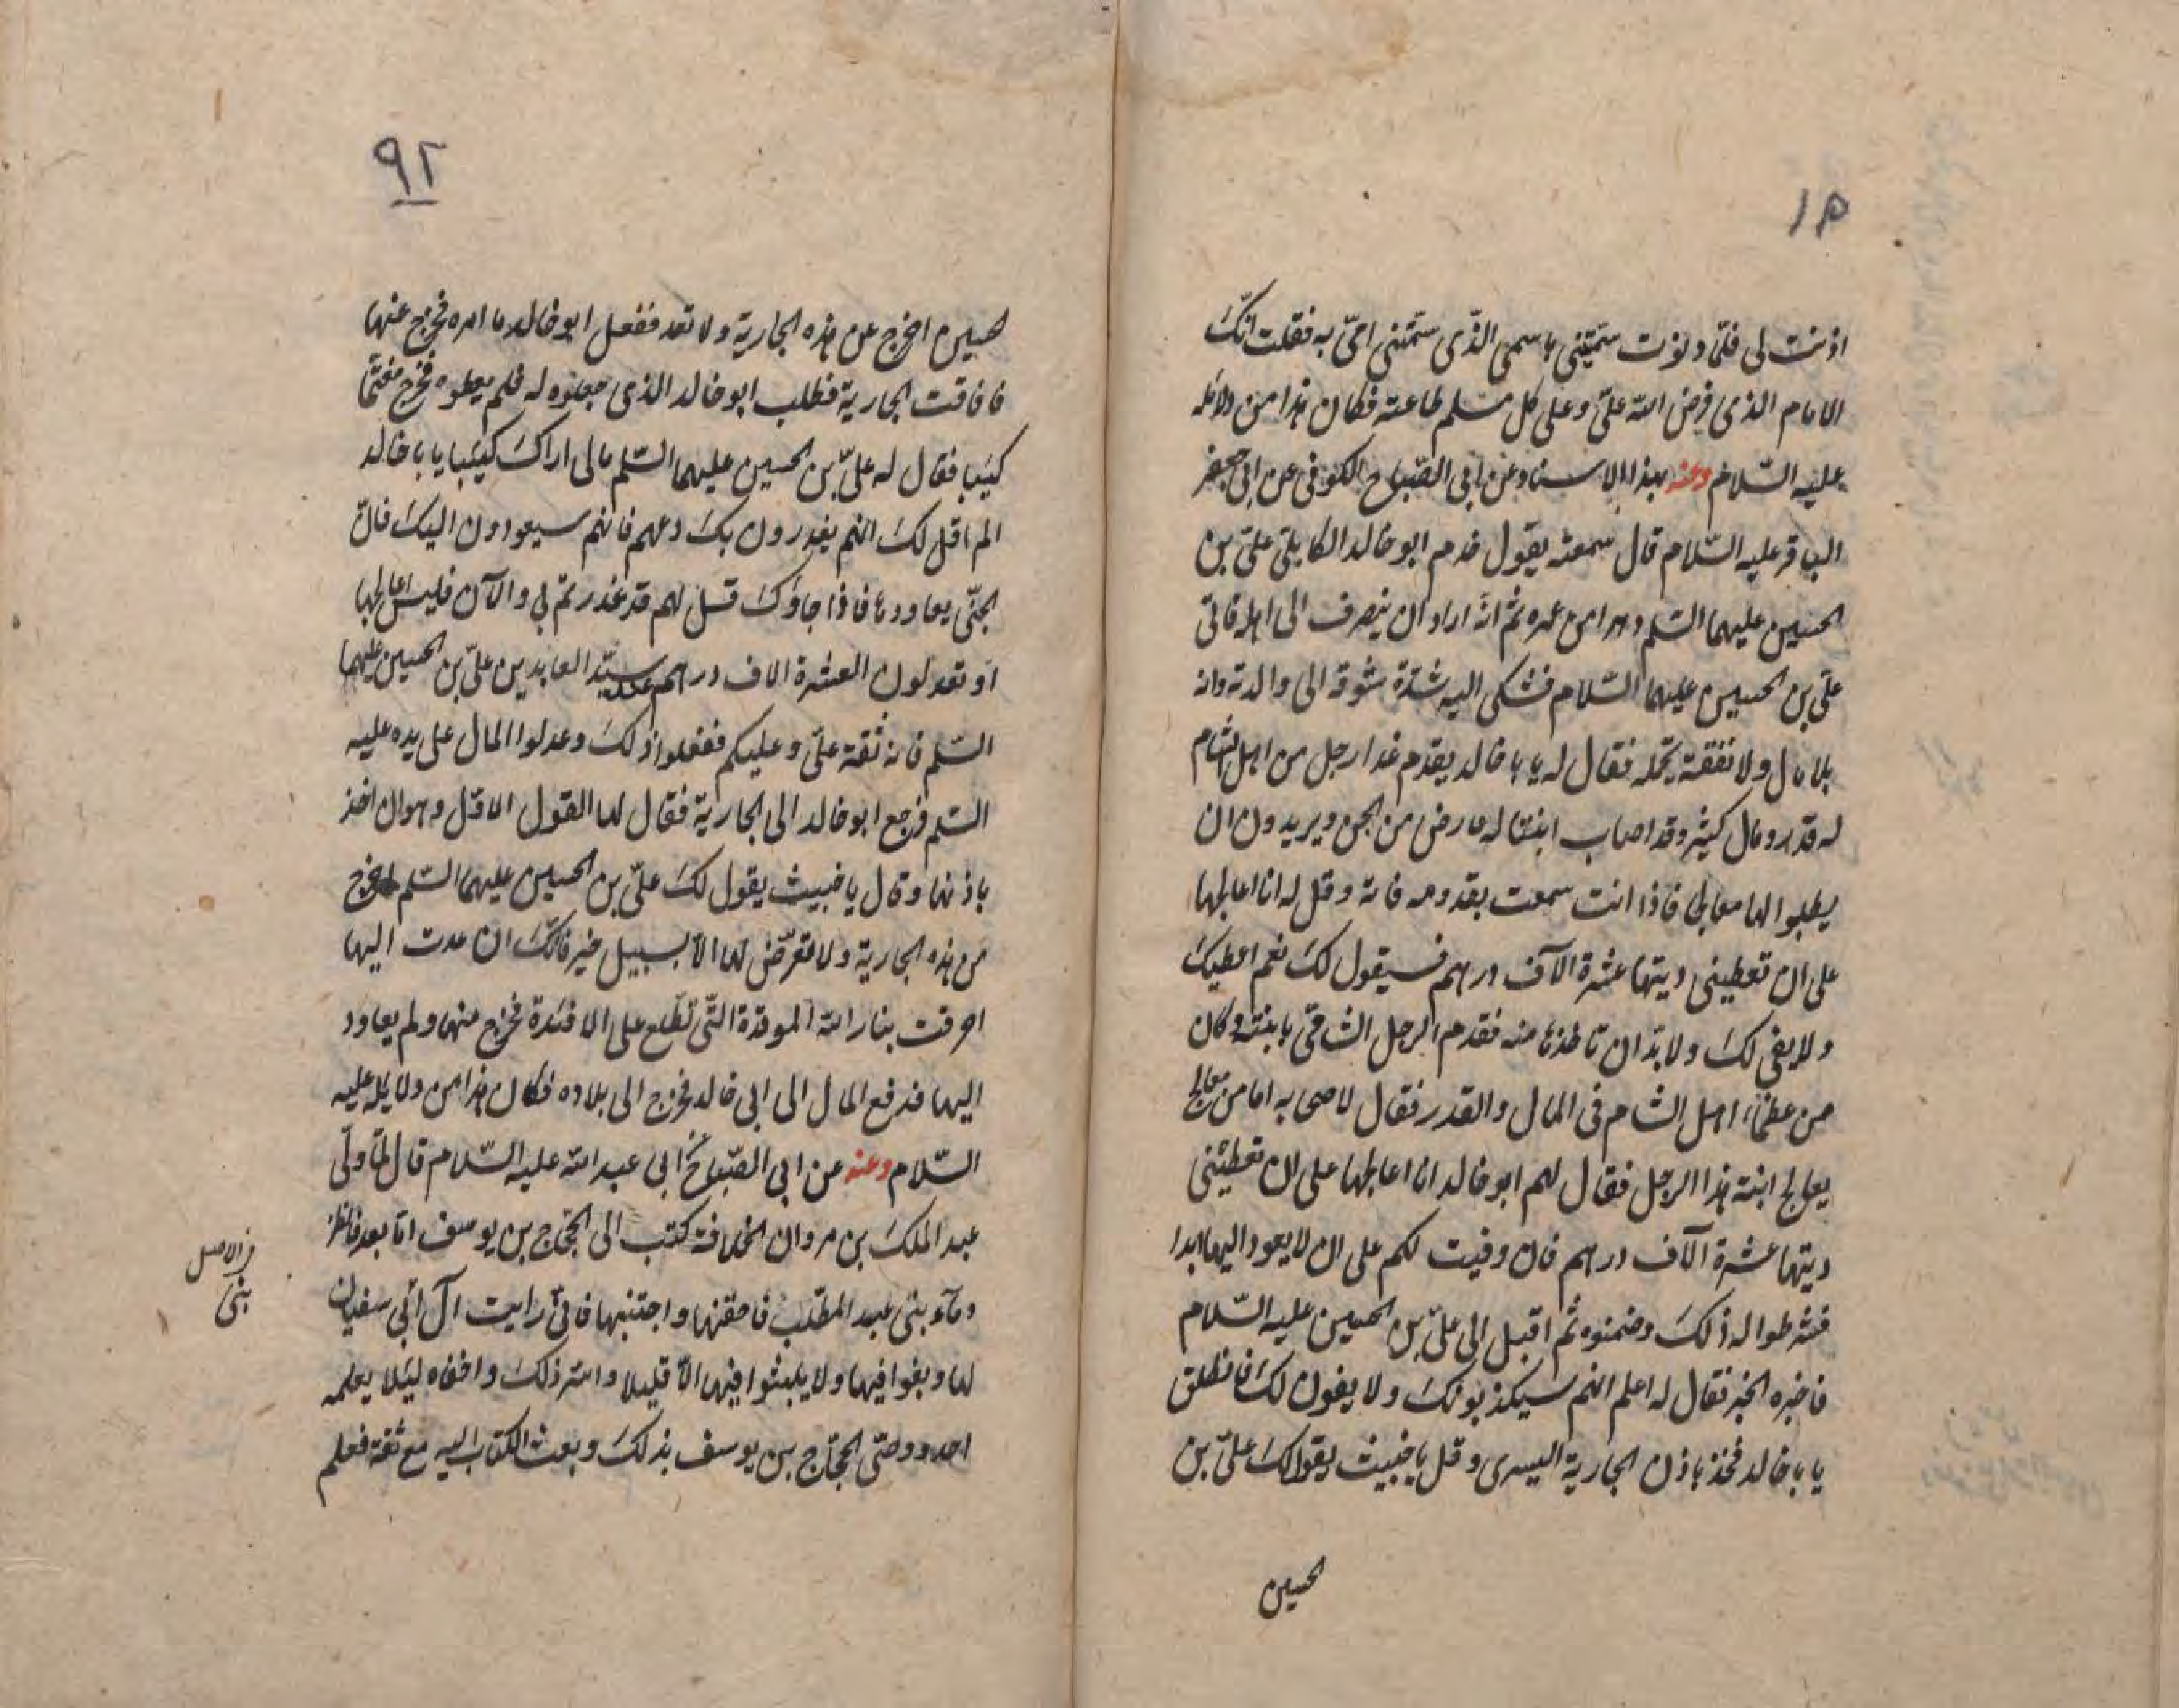 ١٥
اذنت لی فلمّا دنوت سمّیتنی باسمی الذّی سمّتنی امّی به فقلت انّک
الامام الذی فرض الله علیّ و علی کل مسلم طاعته فکان هذا من دلائله
علیه السّلام وعنه بهذا الاسناد عن ابی الصّباح الکوفی عن ابی جعفر
الباقر علیه السّلام قال سمعته یقول خدم ابو خالد الکابلی علیّ بن
الحسین علیهما السّلم دهرا من عمره ثم انّه اراد ان ینصرف الی اهله فاتی
علیّ بن الحسین علیهما السّلام فشکی الیه شدّة شوقه الی والدته وانه
بلا مال و لا نفقة تحمله فقال له یا با خالد یقدم غدا رجل من اهل الشام
له قدر و مال کثیر و قد اصاب ابنتا له عارض من الجن و یریدون ان
یطلبوا لها معالجا فاذا انت سمعت بقدومه فاته و قل له انا اعالجها
علی ان تعطینی دیتها عشرة الآف درهم فسیقول لک نعم اعطیک
و لا یفی لک و لا بدّ ان تاخذها منه فقدم الرجل الشامی بابنته و کان
من عظماء اهل الشام فی المال و القدر فقال لاصحابه اما من معالج
یعالج ابنة هذا الرجل فقال لهم ابو خالد انا اعالجها علی ان تعطینی
دیتها عشرة الآف درهم فان وفیت لکم علی ان لا یعود الیها ابدا
فشرطوا له ذلک و ضمنوه ثم اقبل الی علیّ بن الحسین علیه السّلام
فاخبره الخبر فقال له اعلم انهم سیکذبونک و لا یفون لک فانطلق
یا با خالد فخذ باذن الجاریة الیسری و قل یا خبیث یقول لک علیّ بن
لحسین
٩٢
لحسین اخرج عن هذه الجاریة و لا تعد ففعل ابو خالد ما امره فخرج عنها
فافاقت الجاریة فطلب ابو خالد الذی جعلوه له فلم یعطوه فخرج مغتمّا
کئیبا فقال له علیّ بن الحسین علیهما السّلم مالی اراک کئیبا یا با خالد
الم اقل لک انهم یغدرون بک دعهم فانهم سیعودون الیک فانّ
الجنّی یعاودها فاذا جاؤک قل لهم قد غدرتم بی و الآن فلیس اعالجها
او تعدلون العشرة الاف درهم سیّد العابدین علیّ بن الحسین علیهما
السّلم فانه ثقة علیّ و علیکم ففعلوا ذلک و عدلوا المال علی یده علیه
السّلم فرجع ابو خالد الی الجاریة فقال لها القول الاوّل و هو ان اخذ
باذنها و قال یا خبیث یقول لک علیّ بن الحسین علیهما السّلم اخرج
من هذه الجاریة و لا تعرّض لها الاّ بسبیل خیر فانّک ان عدت الیها
احرقت بنار الله الموقدة التّی تطّلع علی الافئدة فخرج منها و لم یعاود
الیها فدفع المال الی ابی خالد فخرج الی بلاده فکان هذا من دلایله علیه
السّلام وعنه عن ابی الصّباح عن ابی عبد الله علیه السّلام قال لمّا ولّی
عبد الملک بن مروان الخلافة کتب الی الحجّاج بن یوسف امّا بعد فانظر
دمآء بنی عبد المطّلب فاحقنها و اجتنبها فانّی رایت آل ابی سفیان
لما وبغوا فیها و لا یلبثوا فیها الاّ قلیلا و استر ذلک و اخفاه لئلا یعلمه
احد و وصّی الحجّاج بن یوسف بذلک و بعث الکتاب الیه مع ثقة فعلم
فی الاصل
بنی